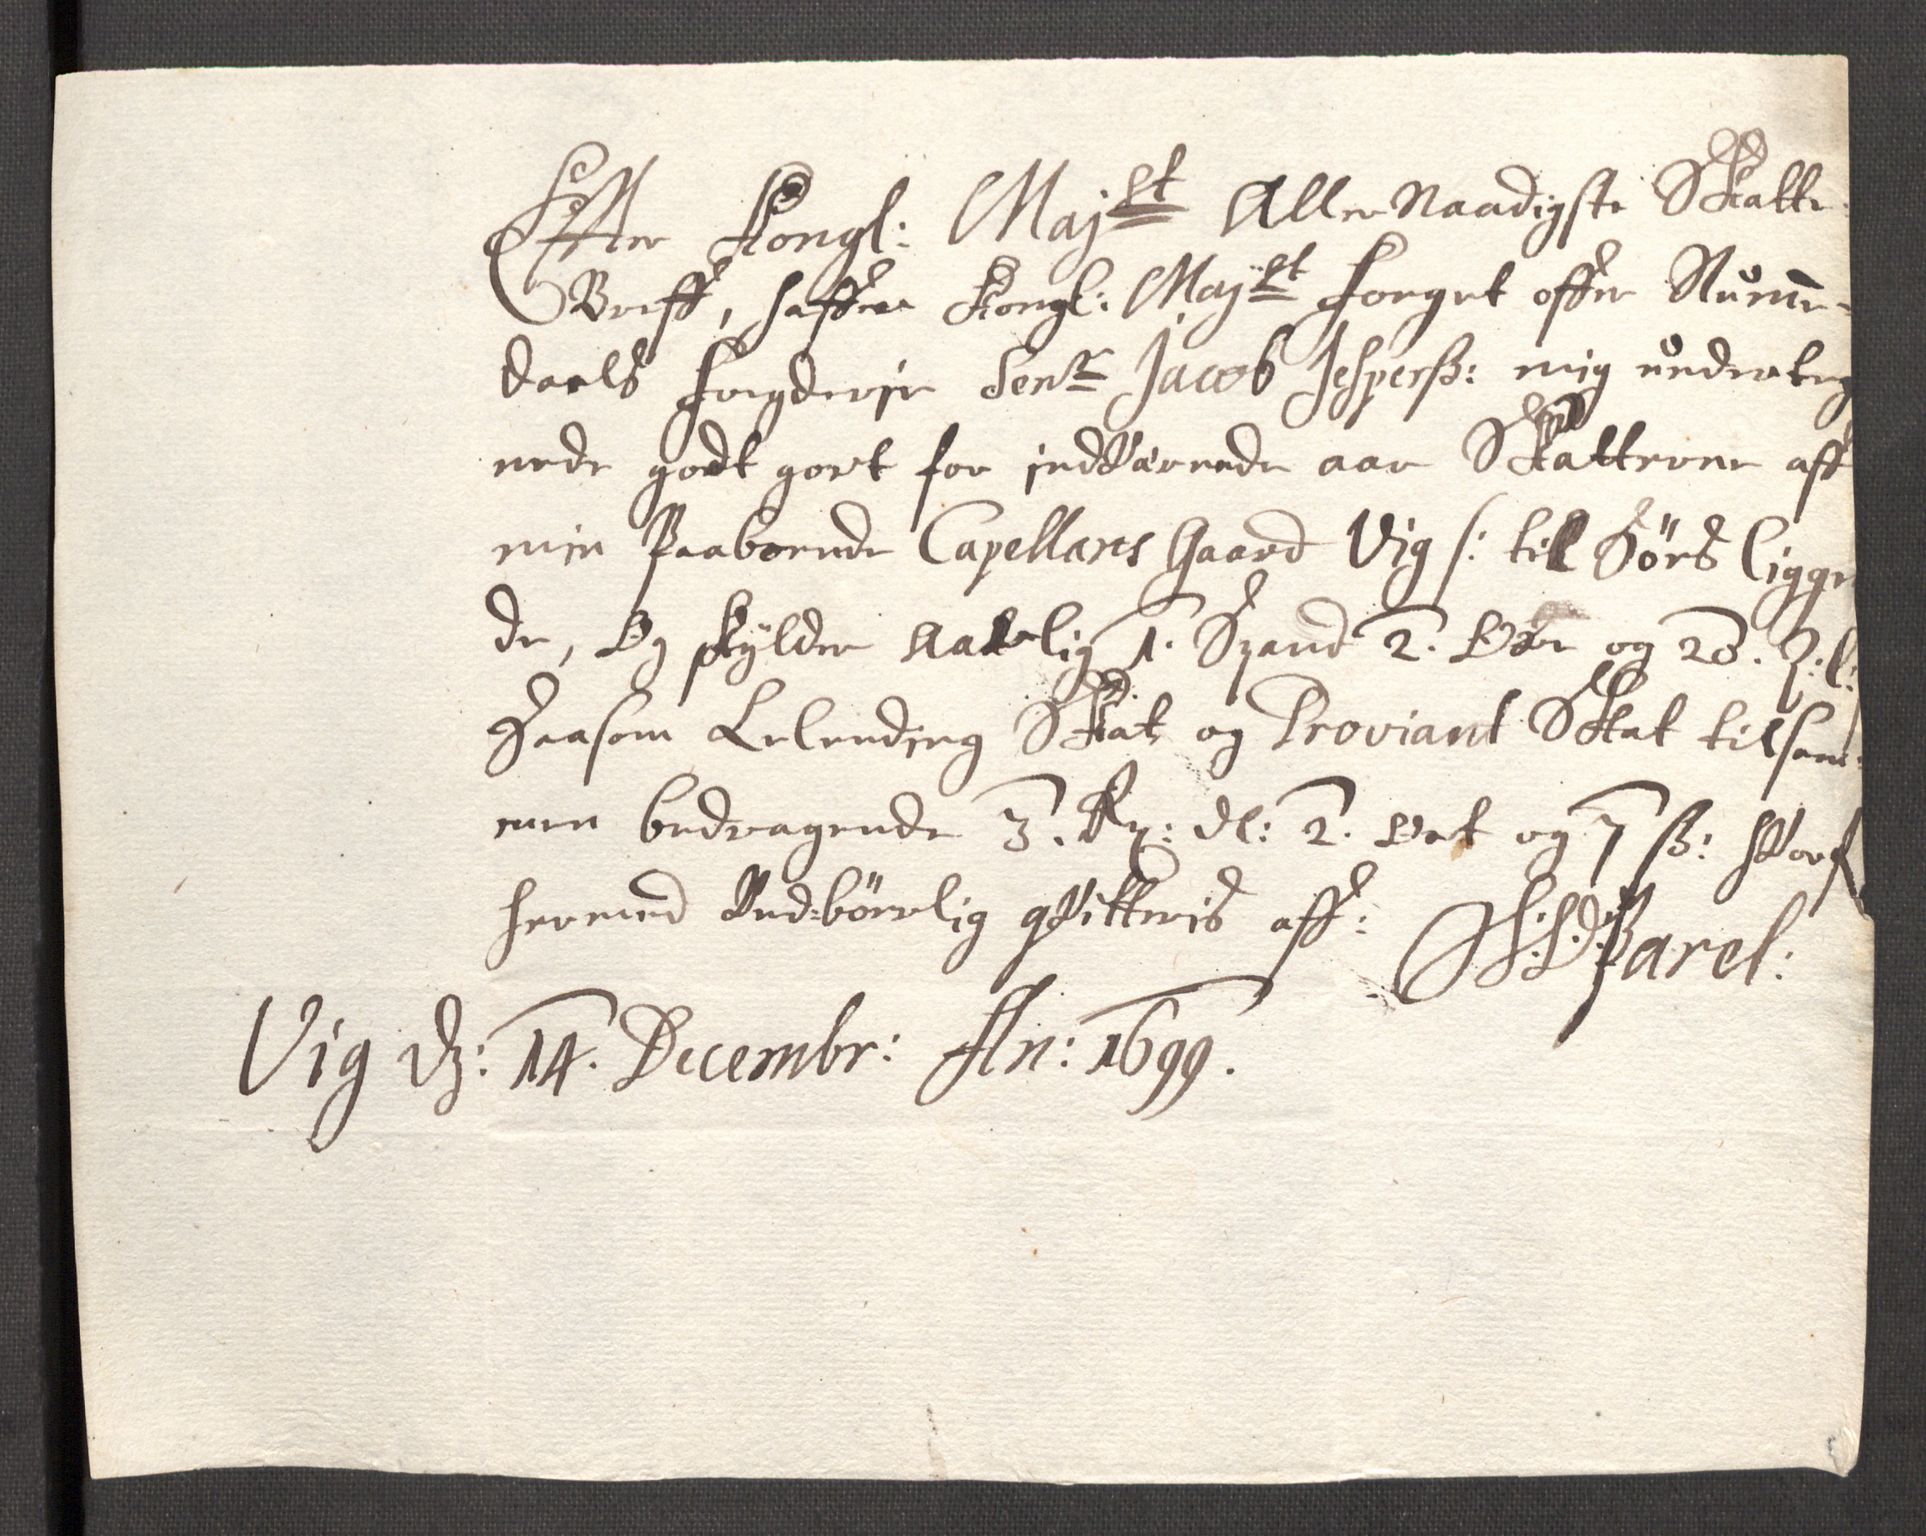 Effter Kongl: Mayst Aller Naadigste Skatte
Breff, haffuer Kongl: Mayst Foeget offuer Numme-
daels Foegderje Senr Jacob Jesperß: mig underteg
nede godt gjort for indVærende aar Skatterne aff
min Paaboende Capellans Gaard Vig /: til Förs Liggen
de, Og skylder Aarlig 1. Spand 2. Ører og 20.
Saasom Leilending Skat og Proviant Skat tilsam-
men bedragende 3. Rx: dl: 2. Ort og 7 ß: hVorfor
hermed Uedbörlig qVitteris aff:
H:H:D: Parel:
Vig dz: 14. Decembr: An: 1699.